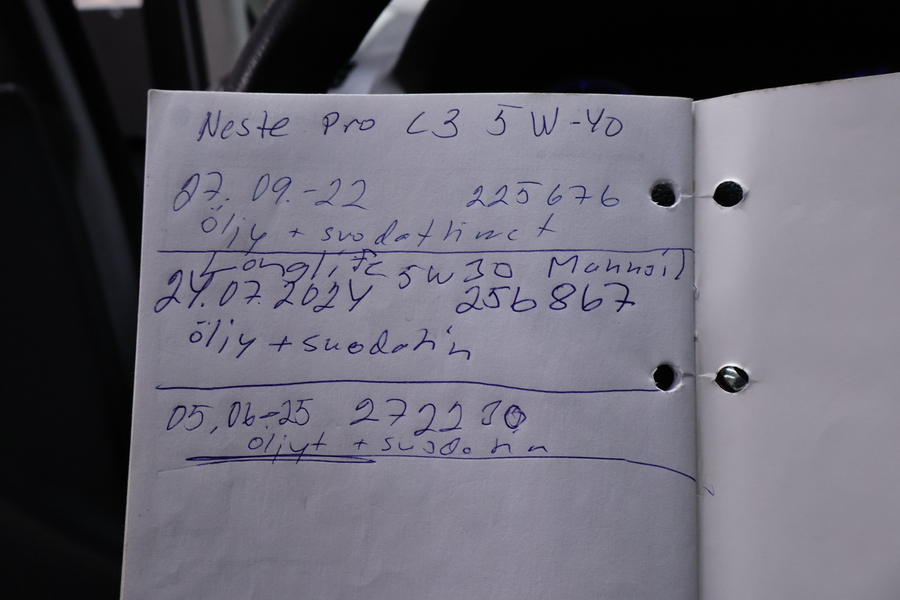 Neste Pro C3 5W-40
27.09.-22 225676
öljy + suodattimet
Longlife 5W30 Mannoil
24.07.2024 256867
öljy + suodatin
05,06-25 272230
öljyt + suodatin